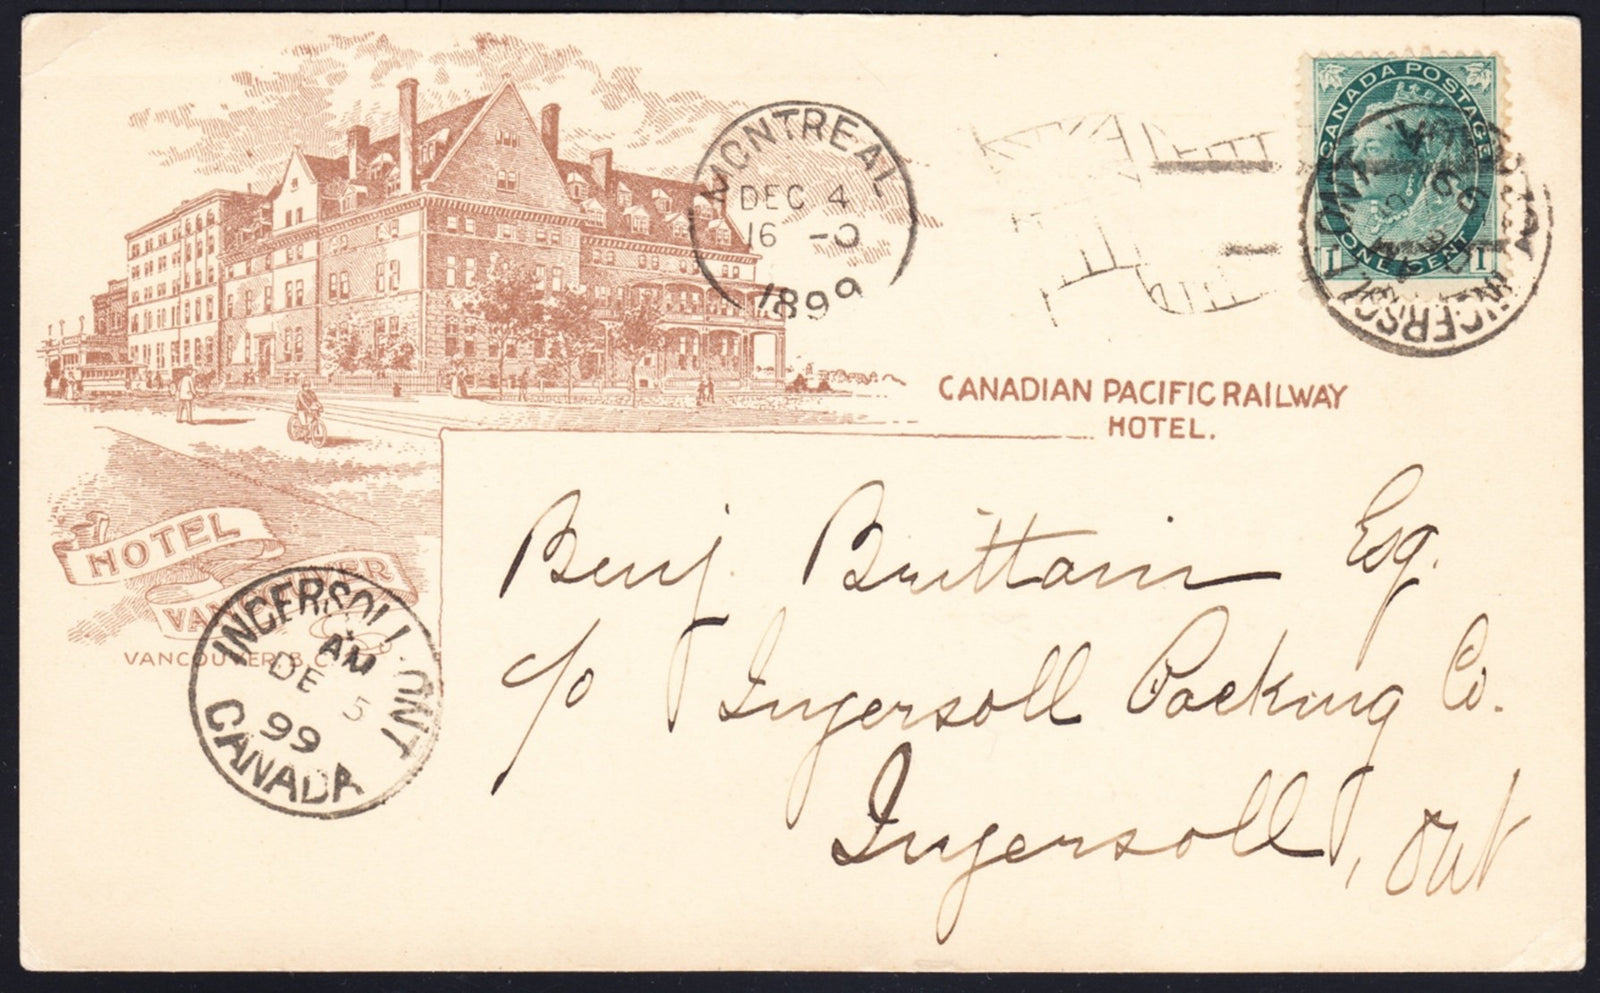 CANADA POSTAGE
1 ONE CENT 1
MONTREAL
DEC 4
16 - 0
1899
INGERSOLL ONT
CANADIAN PACIFIC RAILWAY
HOTEL.
HOTEL
VANCOUVER
VANCOUVER, B.C.
INGERSOLL · ONT
AM
DE 5
99
CANADA
Benj. Brittain Esq.
c/o Ingersoll Packing Co.
Ingersoll, Ont